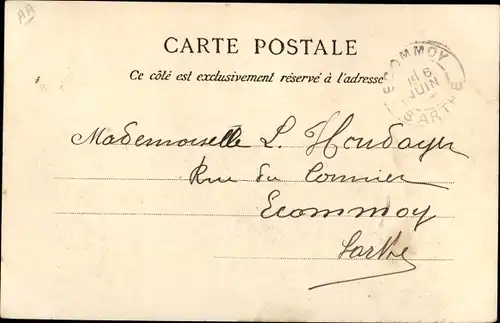 AA
CARTE POSTALE
Ce côté est exclusivement réservé à l'adresse
ECOMMOY
6
JUIN
SARTHE
Mademoiselle L. Houdayer
Rue du
Ecommoy
Sarthe